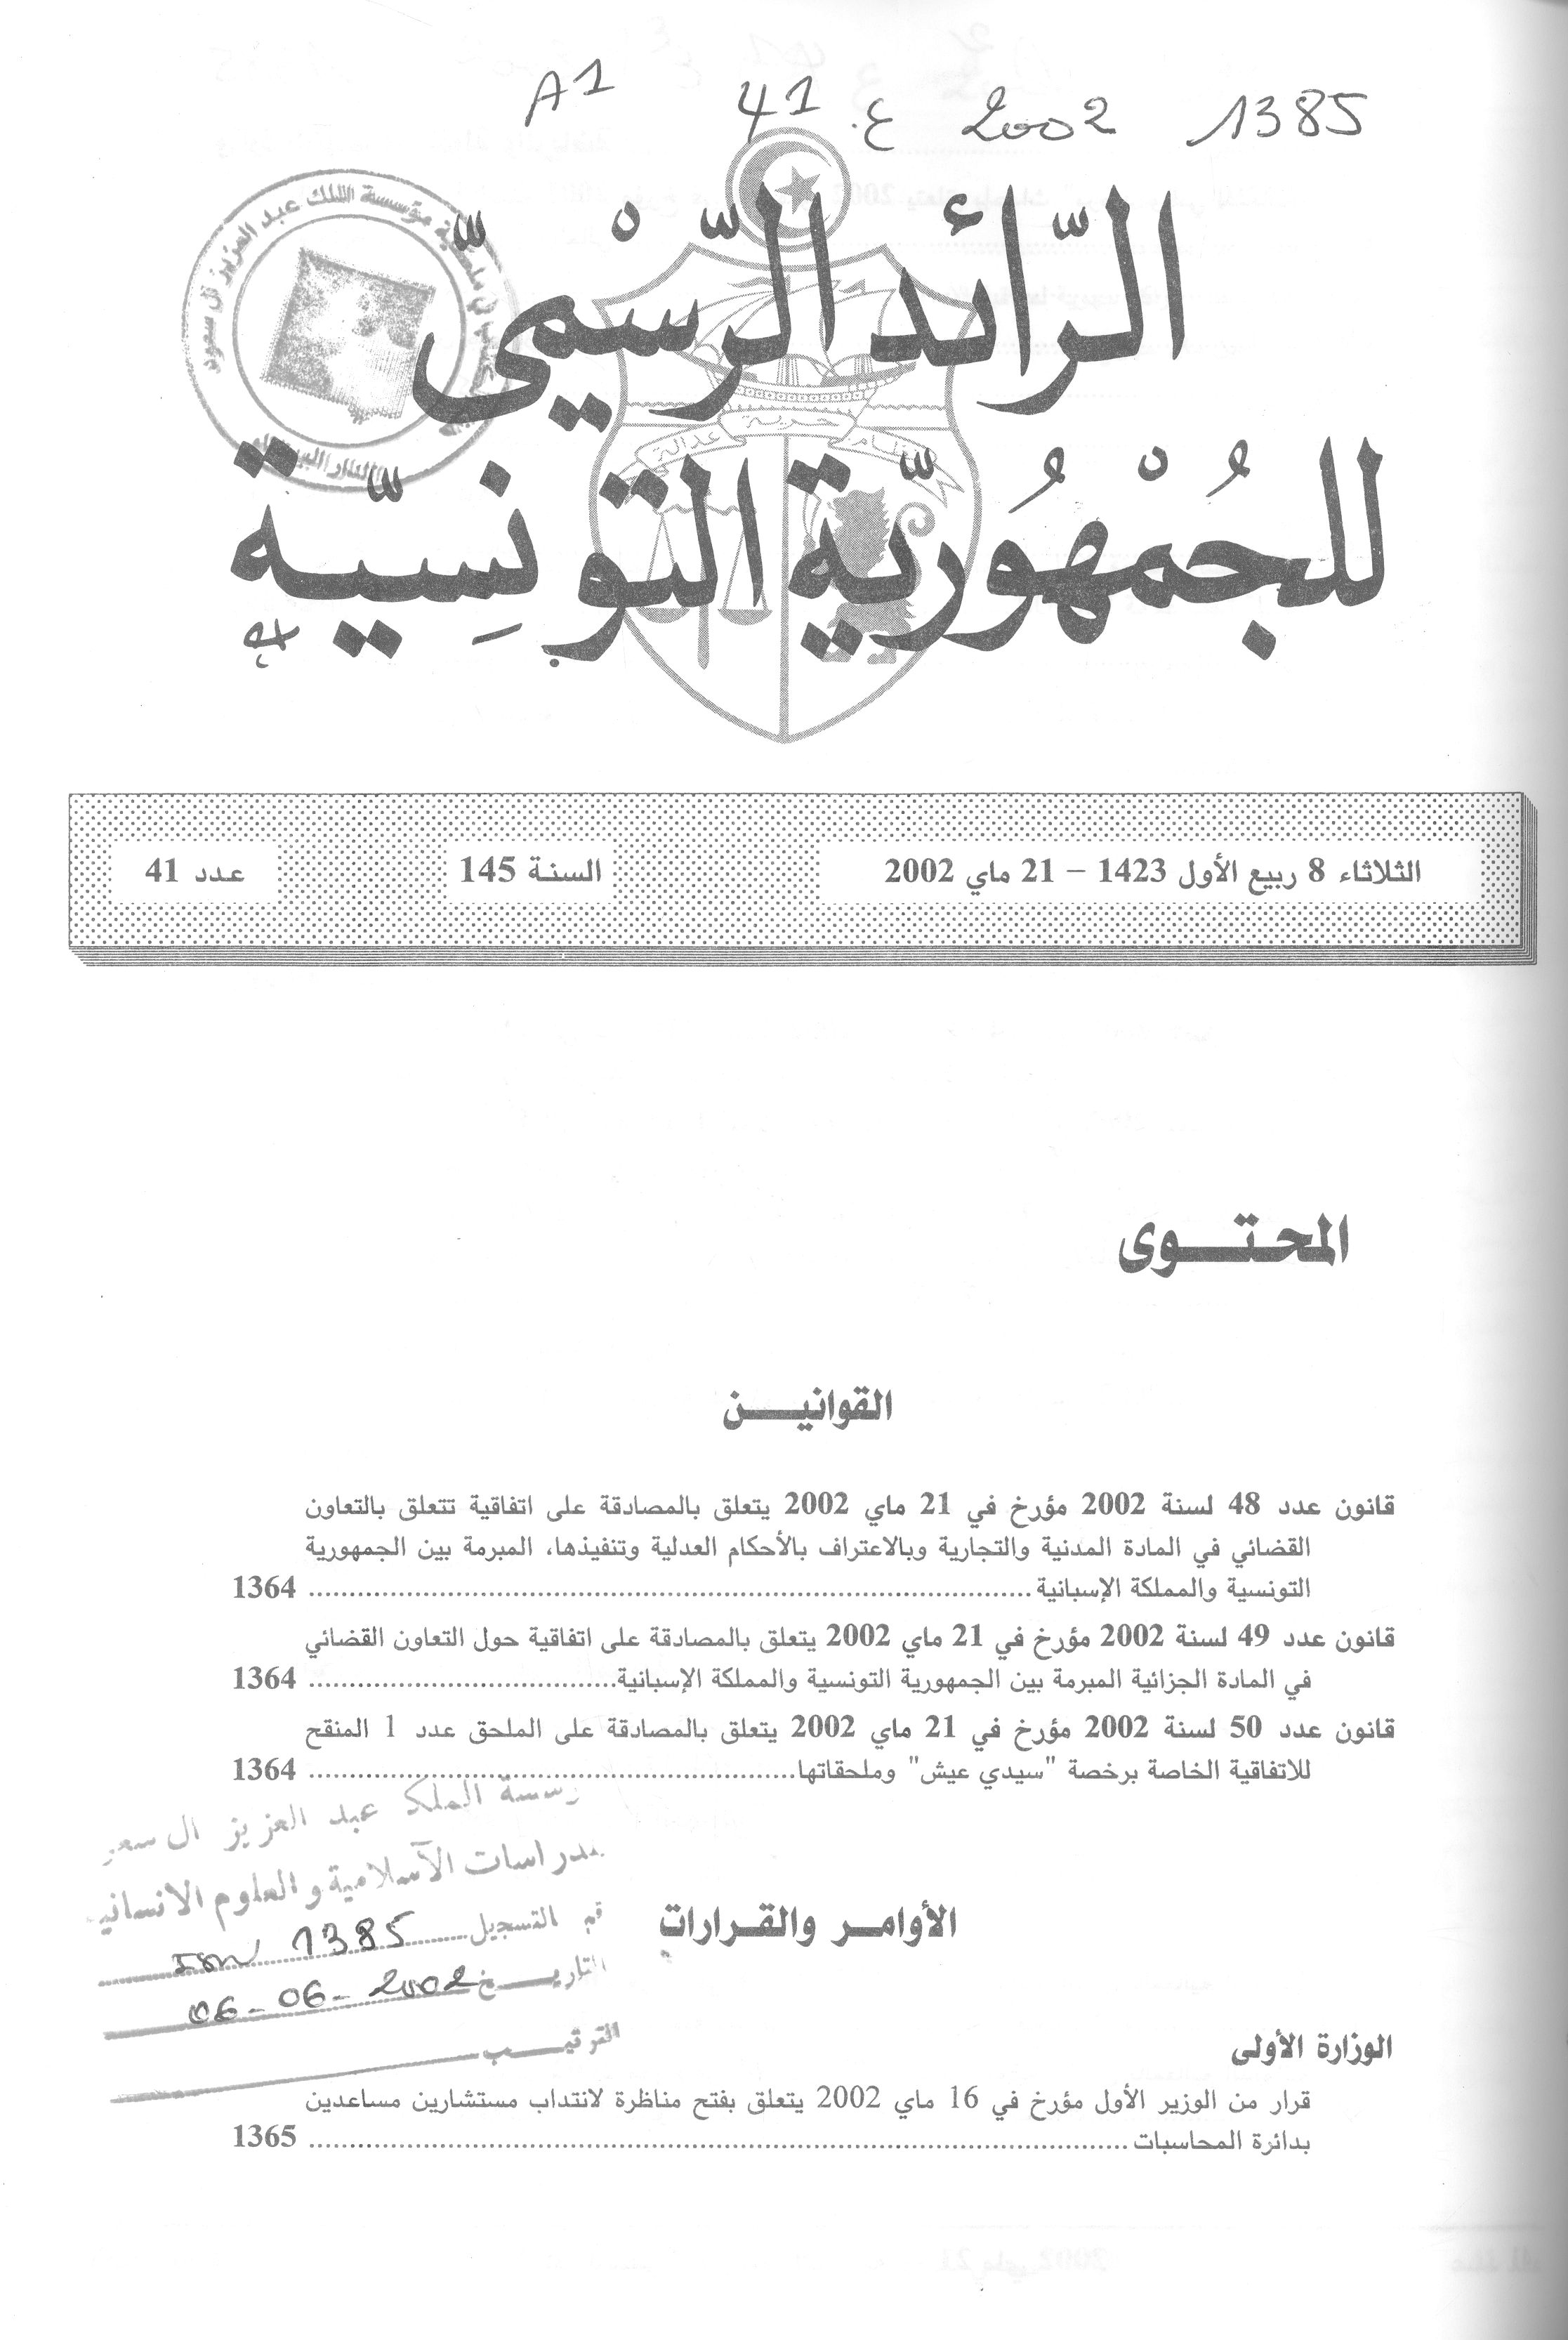 A1 41 ع. 2002 1385
الرّائد الرّسْميّ
للجُمْهُوريّة التّونِسيّة
نظام حرية عدالة
مؤسسة الملك عبد العزيز آل سعود
الثلاثاء 8 ربيع الأول 1423 – 21 ماي 2002
السنة 145
عدد 41
المحتوى
القوانين
قانون عدد 48 لسنة 2002 مؤرخ في 21 ماي 2002 يتعلق بالمصادقة على اتفاقية تتعلق بالتعاون
القضائي في المادة المدنية والتجارية وبالاعتراف بالأحكام العدلية وتنفيذها، المبرمة بين الجمهورية
التونسية والمملكة الإسبانية ........ 1364
قانون عدد 49 لسنة 2002 مؤرخ في 21 ماي 2002 يتعلق بالمصادقة على اتفاقية حول التعاون القضائي
في المادة الجزائية المبرمة بين الجمهورية التونسية والمملكة الإسبانية ........ 1364
قانون عدد 50 لسنة 2002 مؤرخ في 21 ماي 2002 يتعلق بالمصادقة على الملحق عدد 1 المنقح
للاتفاقية الخاصة برخصة "سيدي عيش" وملحقاتها ........ 1364
الملك عبد العزيز آل سعو
الآسلامية والعلوم الانسانية
التسجيل 1385
التاريخ 06-06-2002
الترتيب
الأوامر والقرارات
الوزارة الأولى
قرار من الوزير الأول مؤرخ في 16 ماي 2002 يتعلق بفتح مناظرة لانتداب مستشارين مساعدين
بدائرة المحاسبات ........ 1365